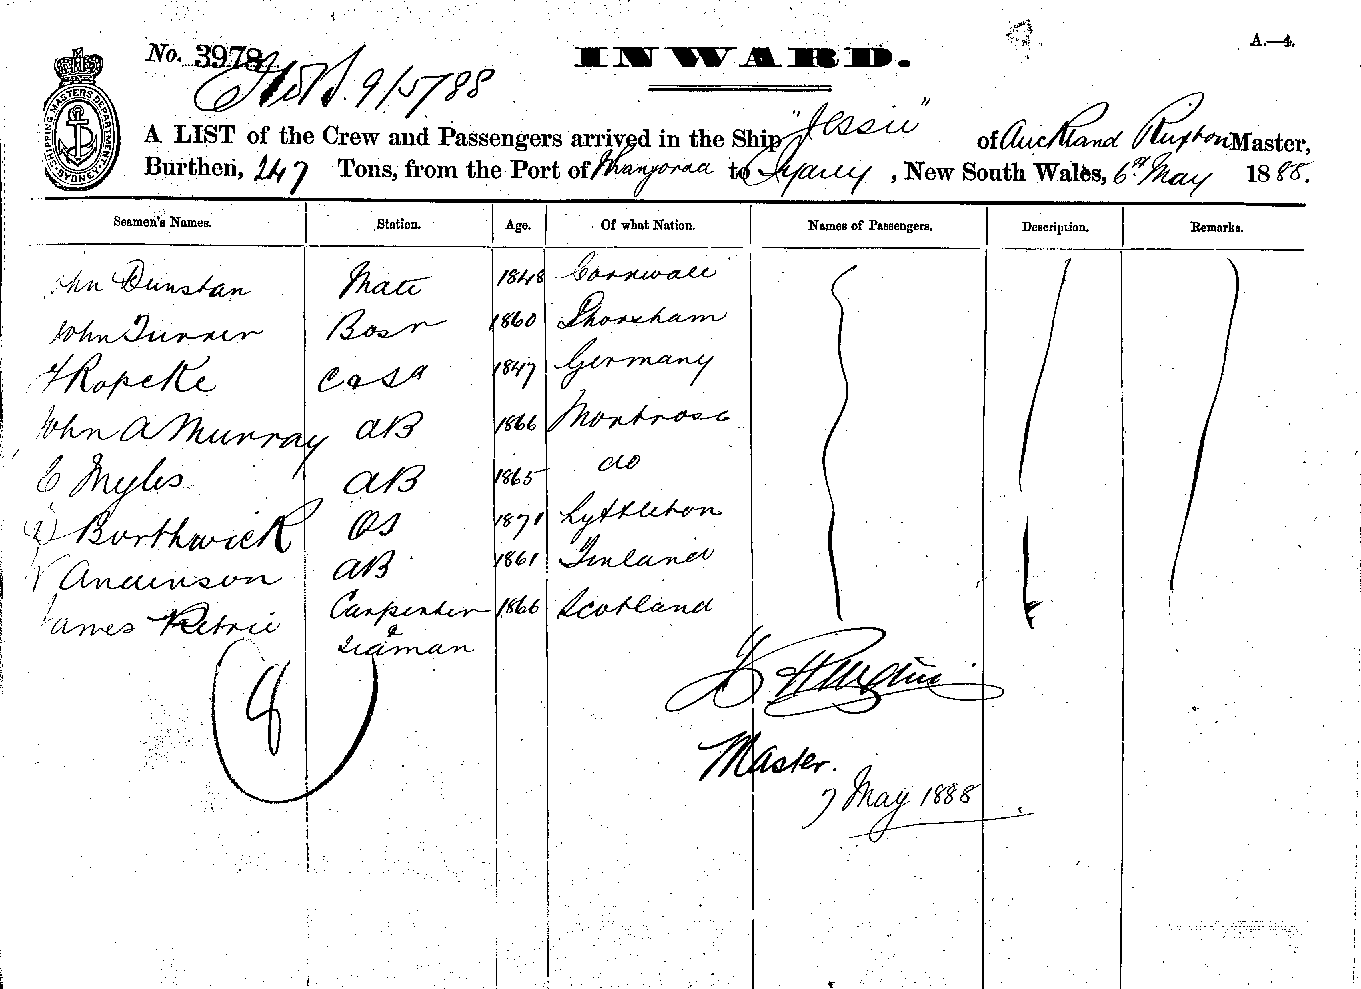 No. 3978
INWARD.
A.—4.
9/5/88
A LIST of the Crew and Passengers arrived in the Ship "Jessie" of Auckland Ruxton Master,
Burthen, 247 Tons, from the Port of to Sydney, New South Wales, 6th May 1888.
SHIPPING MASTERS DEPARTMENT SYDNEY
Seamen's Names. Station. Age. Of what Nation. Names of Passengers. Description. Remarks.
John Dunstan Mate 1848 Cornwall
John Turner Bosn 1860 Shorsham
Ropcke C & SA 1847 Germany
John A Murray AB 1866 Montrose
C Myles AB 1865 do
Borthwick OS 1871 Lyttleton
Anderson AB 1861 Finland
James Petrie Carpenter 1866 Scotland
& Seaman
8
Master.
7 May 1888